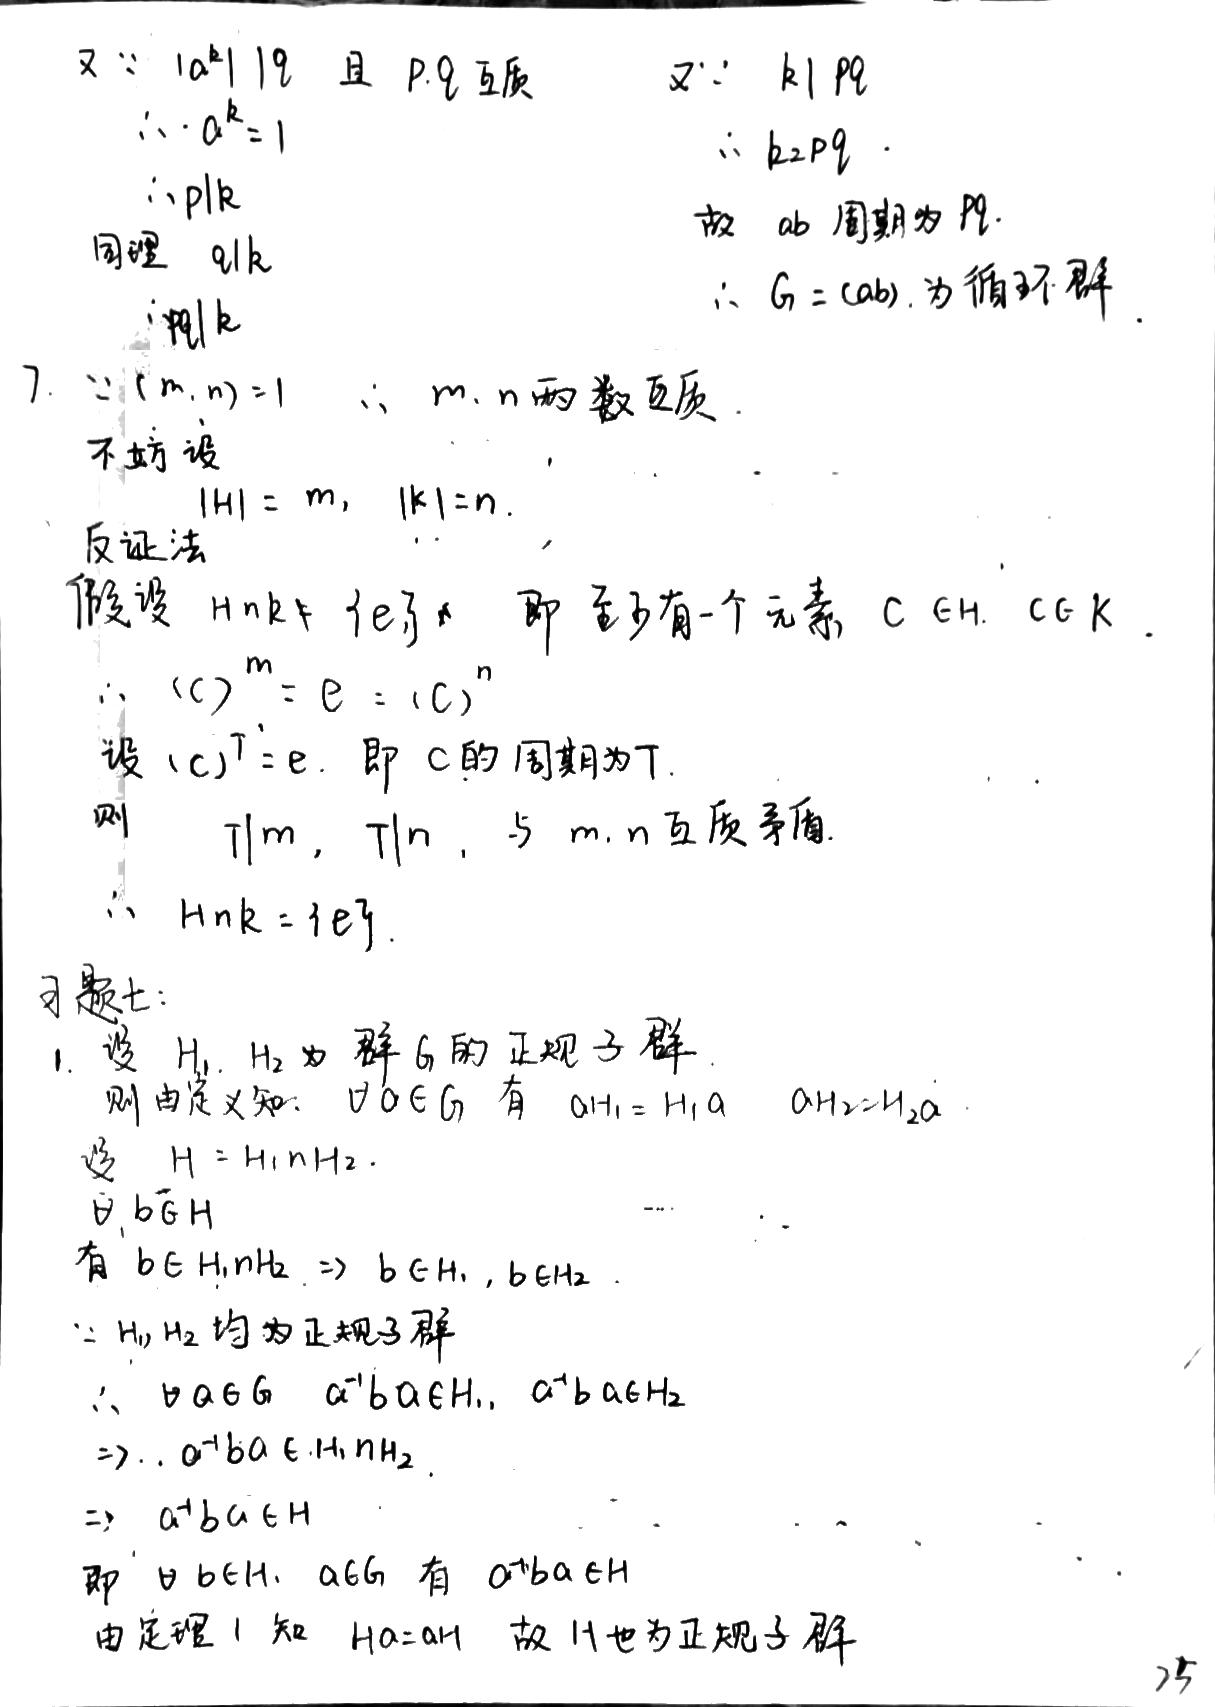 又∵ |a^k| | q 且 p.q 互质
∴ a^k = 1
∴ p|k
同理 q|k
∴ pq|k
又∵ k | pq
∴ k=pq.
故 ab 周期为 pq.
∴ G = (ab). 为循环群.
7. ∵ (m.n)=1 ∴ m.n 两数互质.
不妨设
|H| = m, |K|=n.
反证法
假设 H∩K ≠ {e}, 即至少有一个元素 C∈H. C∈K.
∴ (C)^m = e = (C)^n
设 (C)^T = e. 即 C的周期为T.
则 T|m, T|n, 与 m.n 互质矛盾.
∴ H∩K = {e}.
习题七:
1. 设 H₁. H₂ 为群G的正规子群.
则由定义知: ∀a∈G 有 aH₁ = H₁a aH₂=H₂a.
设 H = H₁∩H₂.
∀ b∈H
有 b∈H₁∩H₂ ⇒ b∈H₁, b∈H₂.
∵ H₁, H₂ 均为正规子群
∴ ∀a∈G a⁻¹ba∈H₁, a⁻¹ba∈H₂
⇒ a⁻¹ba∈H₁∩H₂.
⇒ a⁻¹ba∈H
即 ∀ b∈H. a∈G 有 a⁻¹ba∈H
由定理1知 Ha=aH 故H也为正规子群
25